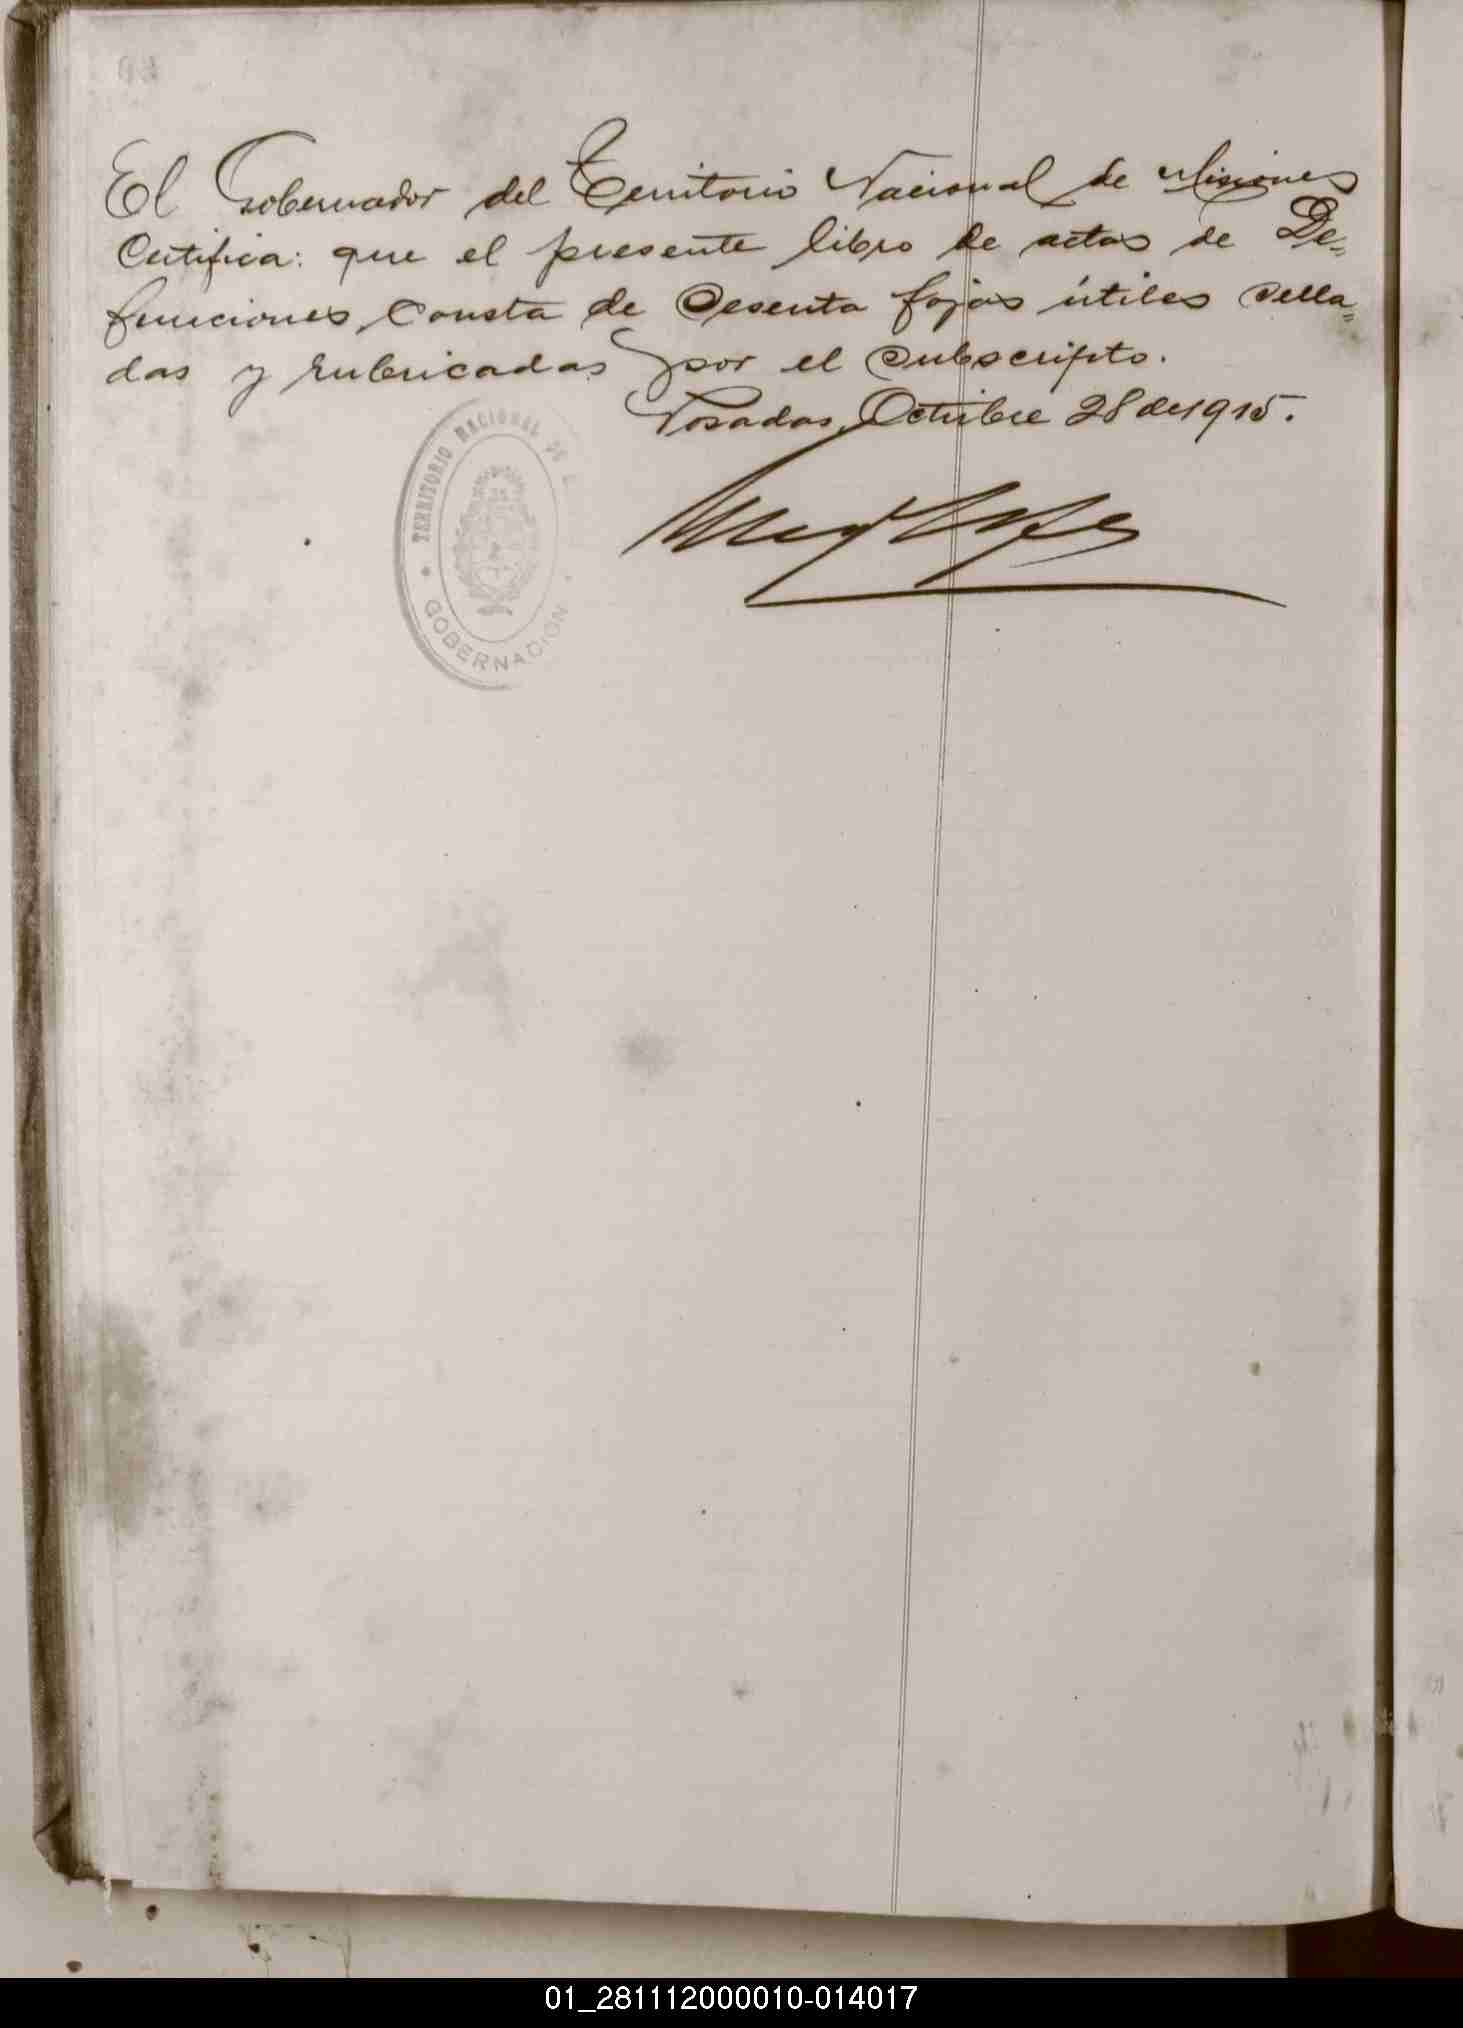 El Gobernador del Territorio Nacional de Misiones
Certifica: que el presente libro de actas de De=
funciones, Consta de Sesenta fojas útiles Sella=
das y rubricadas por el Subscripto.
Posadas, Octubre 28 de 1915.
TERRITORIO NACIONAL DE
GOBERNACION
01_281112000010-014017